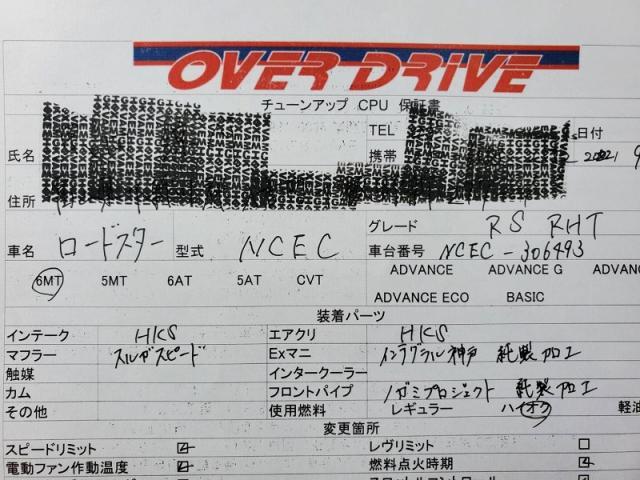 OVER DRIVE
チューンアップ CPU 保証書
TEL 日付
氏名 携帯 2021 9
住所
車名 ロードスター 型式 NCEC グレード RS RHT
車台番号 NCEC-306493
6MT 5MT 6AT 5AT CVT ADVANCE ADVANCE G ADVAN
ADVANCE ECO BASIC
装着パーツ
インテーク HKS エアクリ HKS
マフラー スルガスピード Exマニ インテグラル神戸 純製加工
触媒 インタークーラー
カム フロントパイプ ノガミプロジェクト 純製加工
その他 使用燃料 レギュラー ハイオク 軽油
変更箇所
スピードリミット レヴリミット
電動ファン作動温度 燃料点火時期